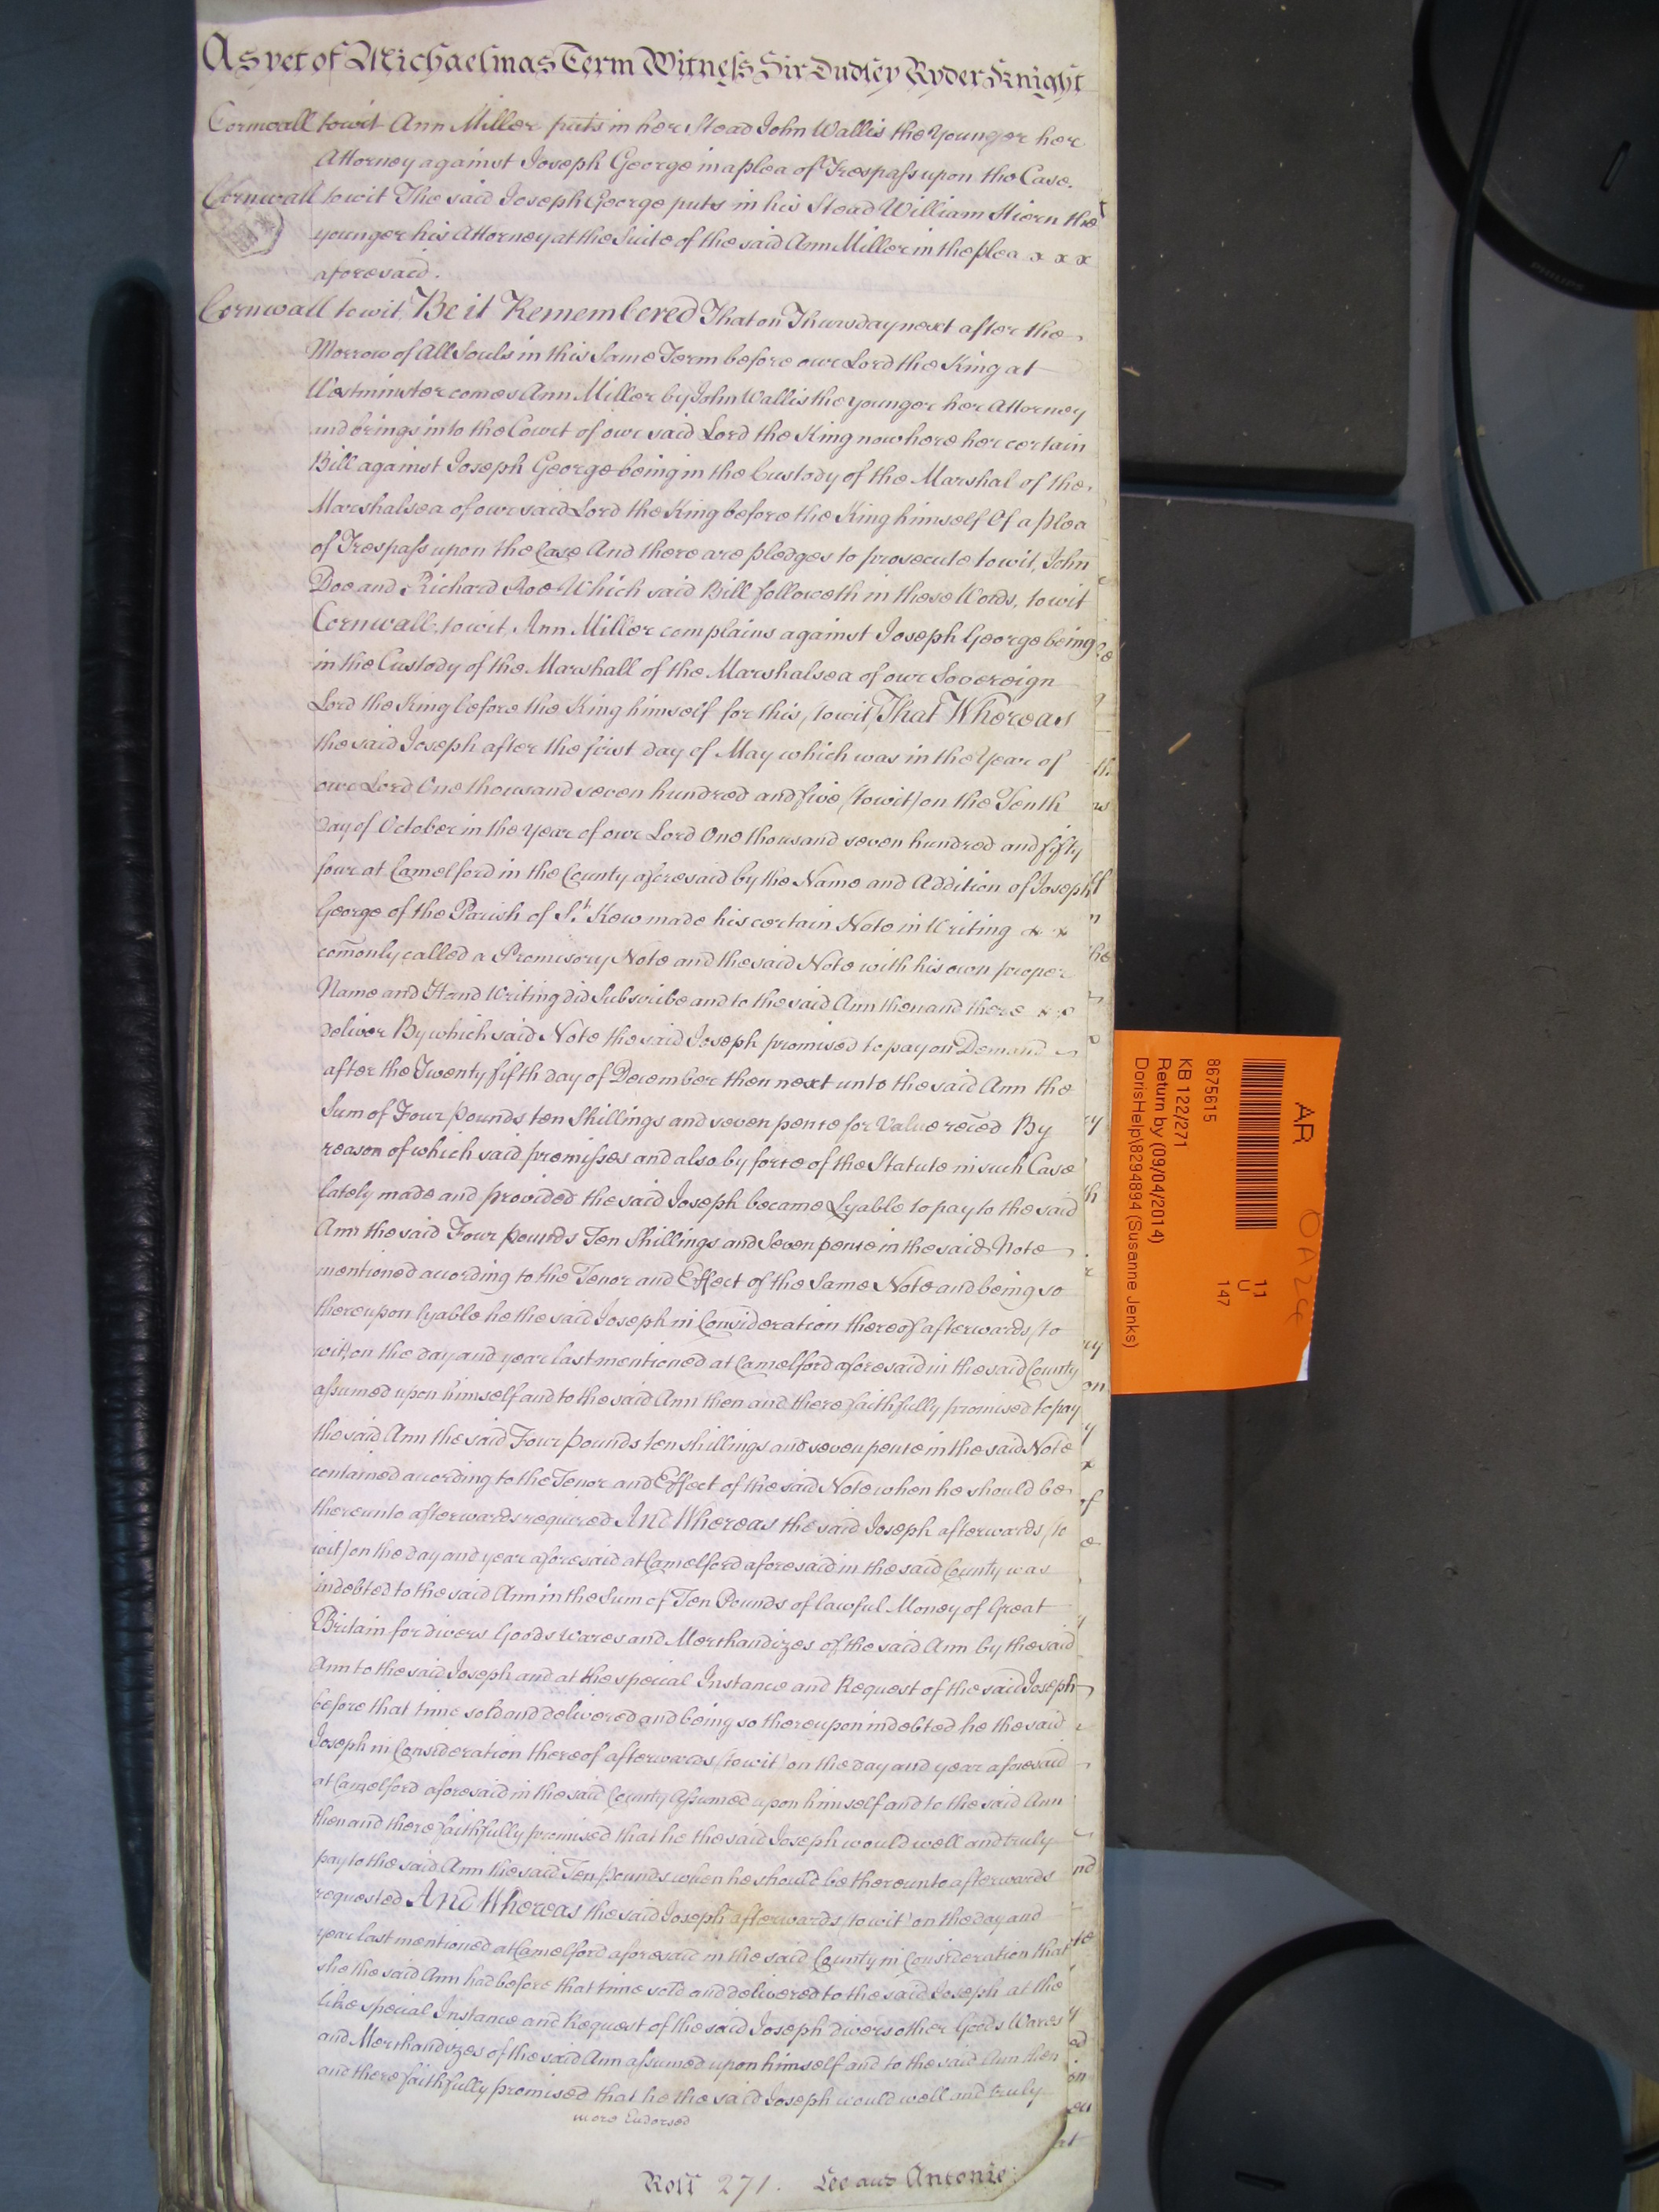 As yet of Michaelmas Term Witness Sir Dudley Ryder Knight
Cornwall towit Ann Miller puts in her Stead John Wallis the Younger her
Attorney against Joseph George in a plea of Trespass upon the Case.
Cornwall towit The said Joseph George puts in his Stead William Hiern the
younger his Attorney at the Suite of the said Ann Miller in the plea x x x
aforesaid.
Cornwall towit, Be it Remembered That on Thursday next after the
Morrow of All Souls in this Same Term before our Lord the King at
Westminster comes Ann Miller by John Wallis the younger her Attorney
and brings into the Court of our said Lord the King now here her certain
Bill against Joseph George being in the Custody of the Marshal of the
Marshalsea of our said Lord the King before the King himself Of a plea
of Trespass upon the Case And there are pledges to prosecute towit, John
Doe and Richard Roe Which said Bill followeth in these Words, towit
Cornwall, towit, Ann Miller complains against Joseph George being
in the Custody of the Marshall of the Marshalsea of our Sovereign
Lord the King before the King himself for this, towit, That Whereas
the said Joseph after the first day of May which was in the Year of
our Lord One thousand seven hundred and five (towit) on the Tenth
Day of October in the Year of our Lord One thousand seven hundred and fifty
four at Camelford in the County aforesaid by the Name and Addition of Joseph
George of the Parish of St. Kew made his certain Note in Writing x x
comonly called a Promisory Note and the said Note with his own proper
Name and Hand Writing did Subscribe and to the said Ann then and there x x
deliver By which said Note the said Joseph promised to pay on Demand
after the Twenty fifth day of December then next unto the said Ann the
Sum of Four pounds ten Shillings and seven pence for Value reced By
reason of which said premisses and also by force of the Statute in such Case
lately made and provided the said Joseph became Lyable to pay to the said
Ann the said Four pounds Ten Shillings and Seven pence in the said Note
mentioned according to the Tenor and Effect of the Same Note and being so
thereupon lyable he the said Joseph in Consideration thereof afterwards (to
wit) on the day and year last mentioned at Camelford aforesaid in the said County
assumed upon himself and to the said Ann then and there faithfully promised to pay
the said Ann the said Four pounds ten shillings and seven pence in the said Note
contained according to the Tenor and Effect of the said Note when he should be
thereunto afterwards required And Whereas the said Joseph afterwards (to
wit) on the day and year aforesaid at Camelford aforesaid in the said County was
indebted to the said Ann in the Sum of Ten Pounds of lawful Money of Great
Britain for divers Goods Wares and Merchandizes of the said Ann by the said
Ann to the said Joseph and at the special Instance and Request of the said Joseph
before that time sold and delivered and being so thereupon indebted he the said
Joseph in Consideration thereof afterwards (towit) on the day and year aforesaid
at Camelford aforesaid in the said County Assumed upon himself and to the said Ann
then and there faithfully promised that he the said Joseph would well and truly
pay to the said Ann the said Ten pounds when he should be thereunto afterwards
requested And Whereas the said Joseph afterwards (towit) on the day and
year last mentioned at Camelford aforesaid in the said County in Consideration that
she the said Ann had before that time sold and delivered to the said Joseph at the
like special Instance and Request of the said Joseph divers other Goods Wares
and Merchandizes of the said Ann assumed upon himself and to the said Ann then
and there faithfully promised that he the said Joseph would well and truly
more Endorsed
Roll 271. Lee and Antonie
AR
8675615
KB 122/271
Return by (09/04/2014)
DorisHelp\8294894 (Susanne Jenks)
11
U
147
PHILIPS